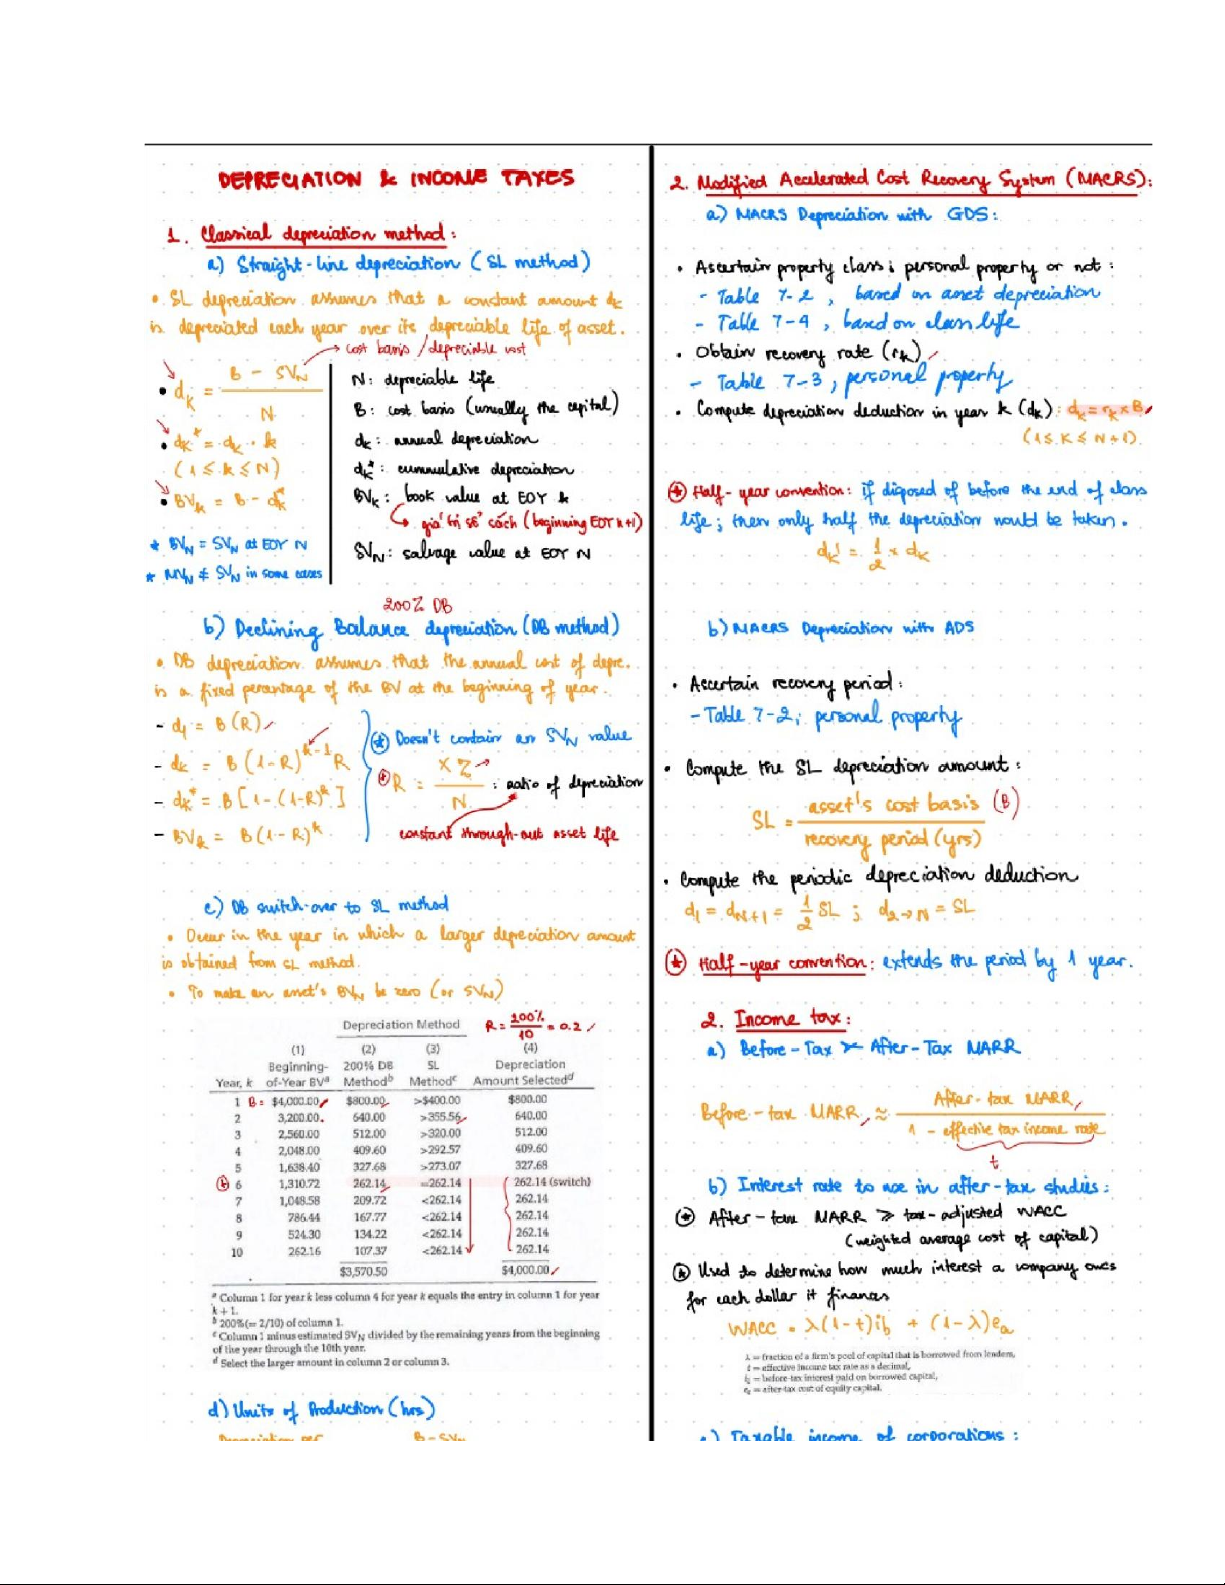 DEPRECIATION & INCOME TAXES
1. Classical depreciation method:
a) Straight-line depreciation (SL method)
• SL depreciation assumes that a constant amount dk
is depreciated each year over its depreciable life of asset.
→ cost basis / depreciable cost
• dk = (B - SVN) / N
• dk* = dk · k
(1 ≤ k ≤ N)
• BVk = B - dk*
* BVN = SVN at EOY N
* MVN ≠ SVN in some cases
N: depreciable life
B: cost basis (usually the capital)
dk: annual depreciation
dk*: cummulative depreciation
BVk: book value at EOY k
→ giá trị sổ sách (beginning EOY k+1)
SVN: salvage value at EOY N
200% DB
b) Declining Balance depreciation (DB method)
• DB depreciation assumes that the annual cost of depre.
is a fixed percentage of the BV at the beginning of year.
- d1 = B(R)
- dk = B(1-R)^(k-1) R
- dk* = B[1-(1-R)^k]
- BVk = B(1-R)^k
* Doesn't contain an SVN value
* R = X% / N : ratio of depreciation
constant through-out asset life
c) DB switch-over to SL method
• Occur in the year in which a larger depreciation amount
is obtained from SL method.
• To make an asset's BVN be zero (or SVN)
Depreciation Method
R = 200% / 10 = 0.2
(1) (2) (3) (4)
Beginning- 200% DB SL Depreciation
Year, k of-Year BVa Methodb Methodc Amount Selectedd
1 B = $4,000.00 $800.00 >$400.00 $800.00
2 3,200.00 640.00 >355.56 640.00
3 2,560.00 512.00 >320.00 512.00
4 2,048.00 409.60 >292.57 409.60
5 1,638.40 327.68 >273.07 327.68
6 1,310.72 262.14 =262.14 262.14 (switch)
7 1,048.58 209.72 <262.14 262.14
8 786.44 167.77 <262.14 262.14
9 524.30 134.22 <262.14 262.14
10 262.16 107.37 <262.14 262.14
$3,570.50 $4,000.00
a Column 1 for year k less column 4 for year k equals the entry in column 1 for year
k + 1.
b 200%(= 2/10) of column 1.
c Column 1 minus estimated SVN divided by the remaining years from the beginning
of the year through the 10th year.
d Select the larger amount in column 2 or column 3.
d) Units of Production (hrs)
Depreciation per B - SVN
2. Modified Accelerated Cost Recovery System (MACRS):
a) MACRS Depreciation with GDS:
• Ascertain property class; personal property or not:
- Table 7-2, based on asset depreciation
- Table 7-4, based on class life
• Obtain recovery rate (rk)
- Table 7-3, personal property
• Compute depreciation deduction in year k (dk): dk = rk × B
(1 ≤ K ≤ N+1)
* Half-year convention: if disposed of before the end of class
life; then only half the depreciation would be taken.
dk' = 1/2 × dk
b) MACRS Depreciation with ADS
• Ascertain recovery period:
- Table 7-2; personal property
• Compute the SL depreciation amount:
SL = asset's cost basis (B) / recovery period (yrs)
• Compute the periodic depreciation deduction
d1 = dN+1 = 1/2 SL ; d2→N = SL
* Half-year convention: extends the period by 1 year.
2. Income tax:
a) Before-Tax & After-Tax MARR
Before-tax MARR ≈ After-tax MARR / (1 - effective tax income rate)
t
b) Interest rate to use in after-tax studies:
* After-tax MARR ≥ tax-adjusted WACC
(weighted average cost of capital)
* Used to determine how much interest a company owes
for each dollar it finances
WACC = λ(1-t)ib + (1-λ)ea
λ = fraction of a firm's pool of capital that is borrowed from lenders,
t = effective income tax rate as a decimal,
ib = before-tax interest paid on borrowed capital,
ea = after-tax cost of equity capital.
c) Taxable income of corporations: